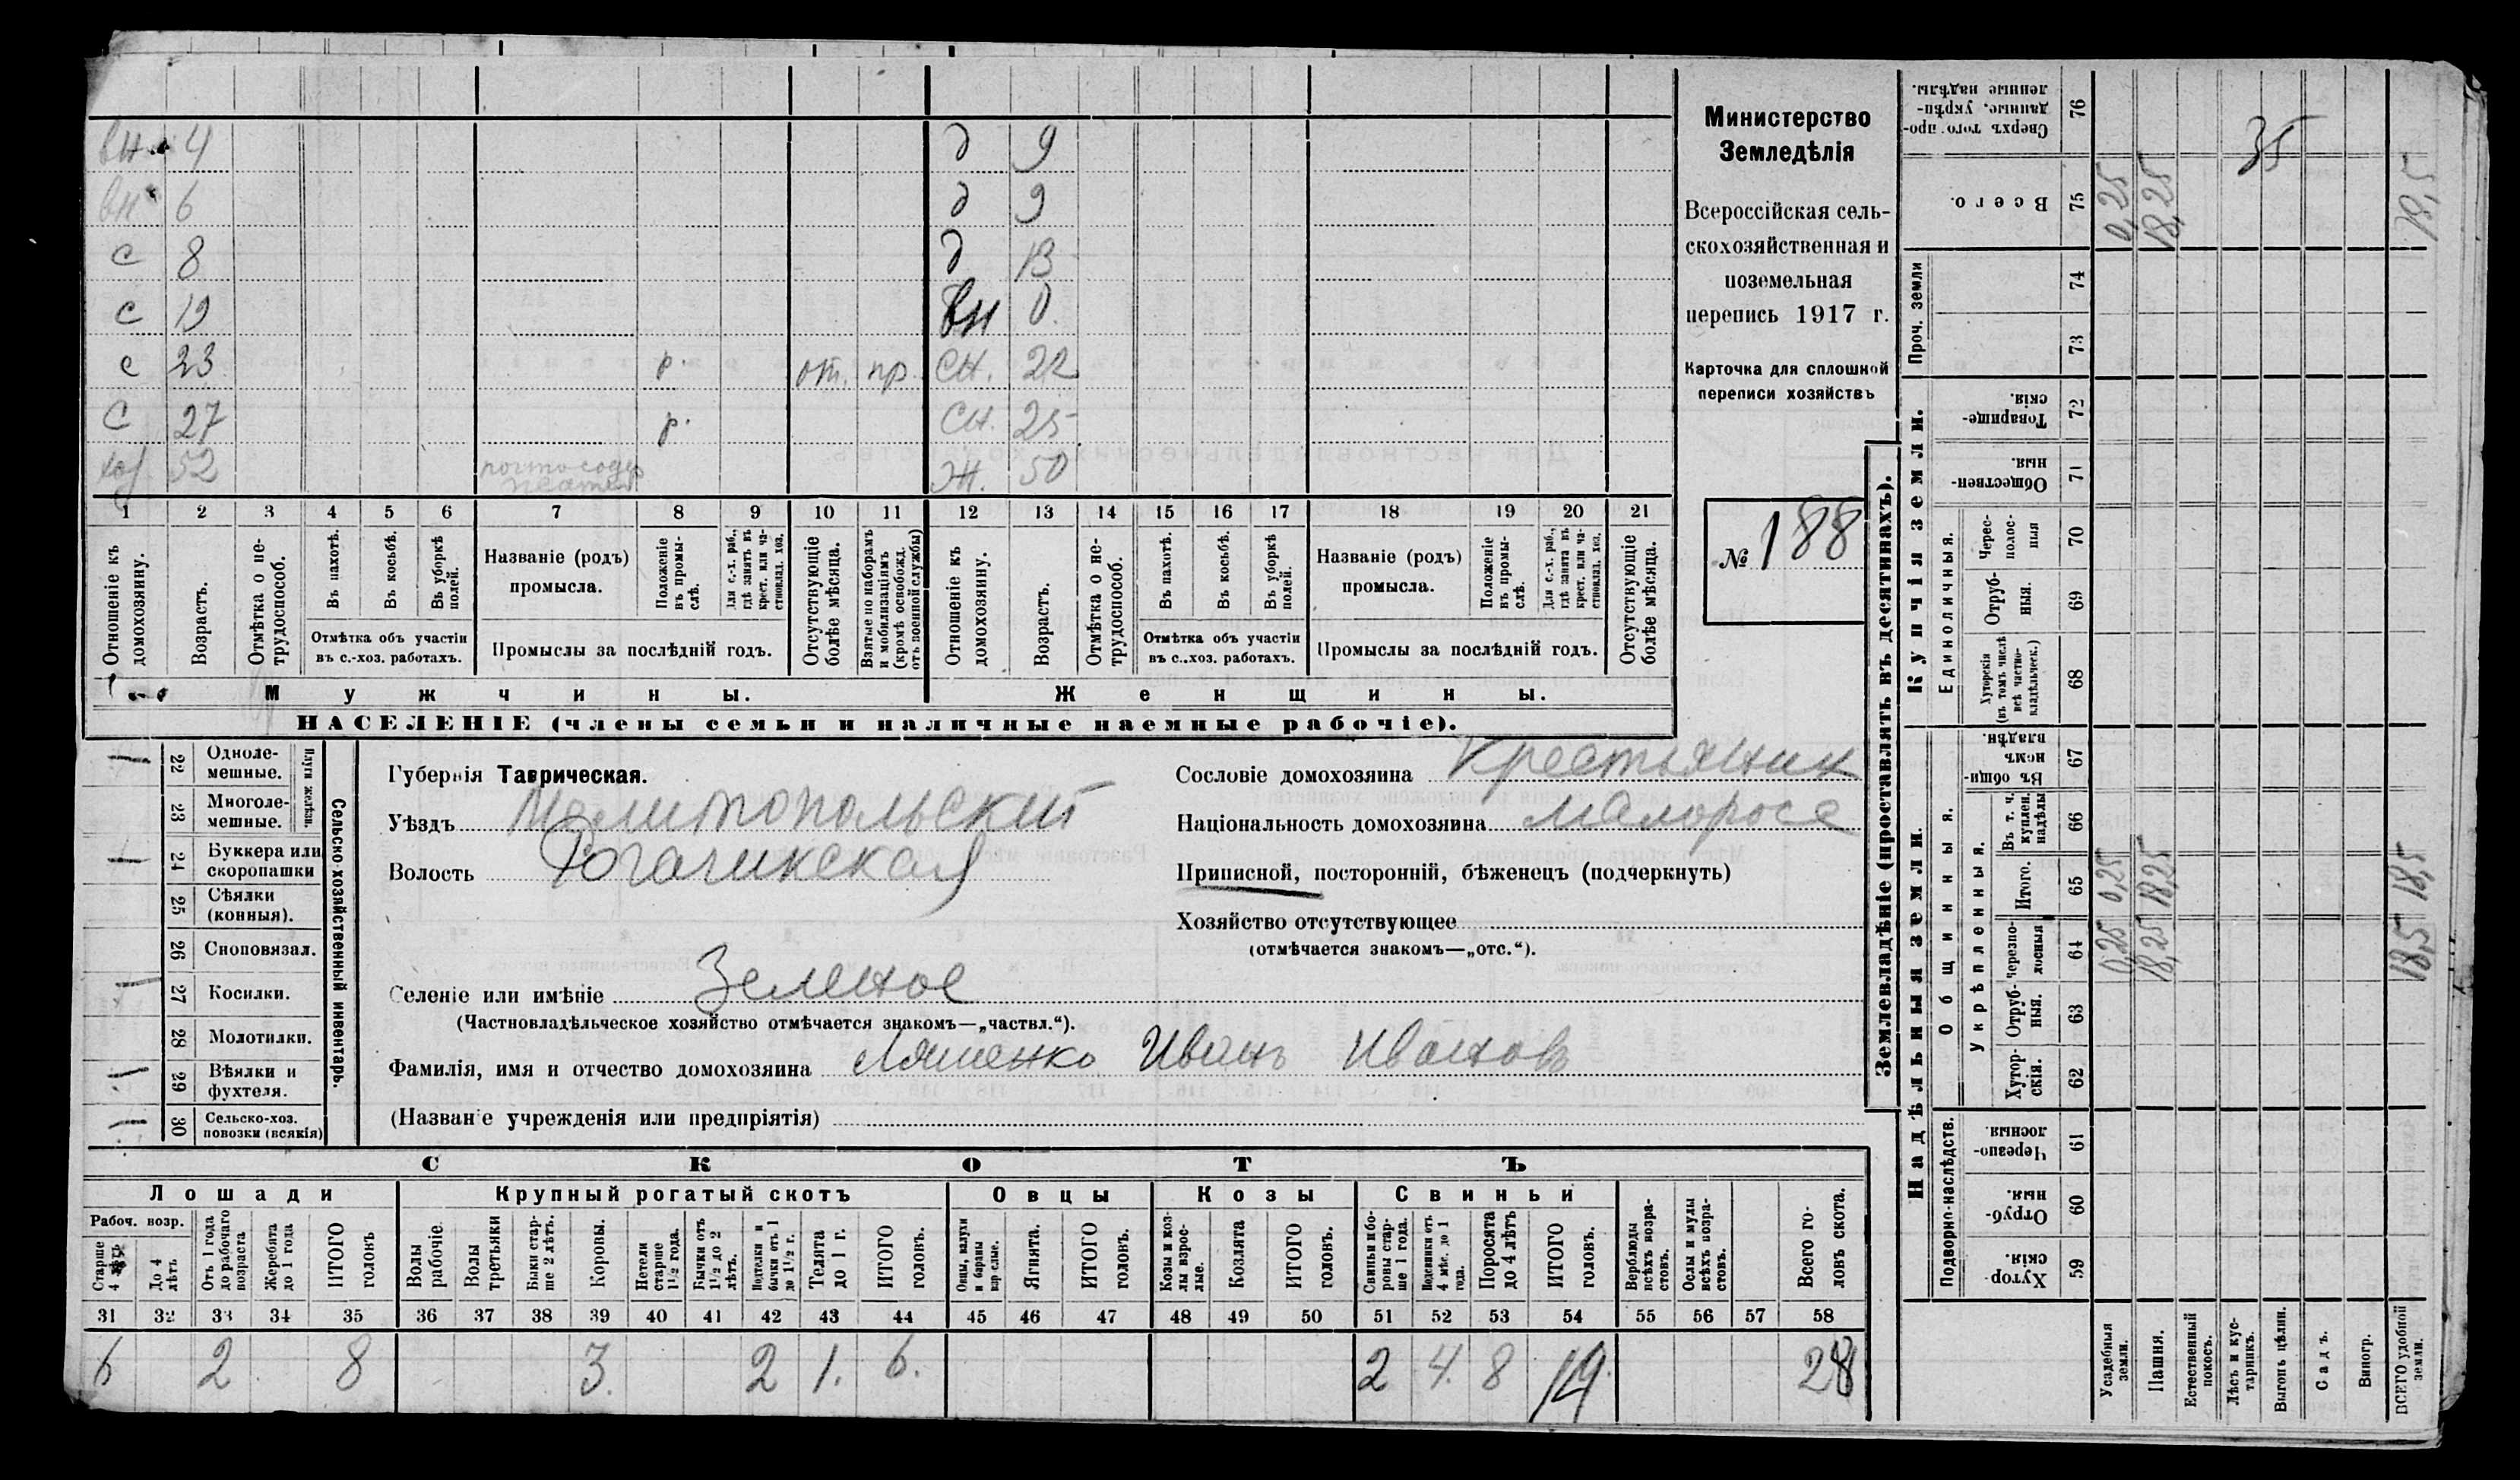 вн. 4 д 9
вн 6 д 9
с 8 д 13
с 19 вн 0.
с 23 р. от. пр. сн. 22
с 27 р. сн. 25
хоз. 52 ж. 50
1 2 3 4 5 6 7 8 9 10 11 12 13 14 15 16 17 18 19 20 21
Отношеніе къ домохозяину.
Возрастъ.
Отмѣтка о нетрудоспособ.
Въ пахотѣ.
Въ косьбѣ.
Въ уборкѣ полей.
Отмѣтка объ участіи
въ с.-хоз. работахъ.
Названіе (родъ)
промысла.
Положеніе въ промыслѣ.
Для с.-х. раб., гдѣ занятъ въ крест. или частновлад. хоз.
Промыслы за послѣдній годъ.
Отсутствующіе болѣе мѣсяца.
Взятые по наборамъ и мобилизаціямъ (кромѣ освобожд. отъ военной службы)
Отношеніе къ домохозяину.
Возрастъ.
Отмѣтка о нетрудоспособ.
Въ пахотѣ.
Въ косьбѣ.
Въ уборкѣ полей.
Отмѣтка объ участіи
въ с.-хоз. работахъ.
Названіе (родъ)
промысла.
Положеніе въ промыслѣ.
Для с.-х. раб., гдѣ занята въ крест. или частновлад. хоз.
Промыслы за послѣдній годъ.
Отсутствующіе болѣе мѣсяца.
Мужчины. Женщины.
НАСЕЛЕНІЕ (члены семьи и наличные наемные рабочіе).
Министерство
Земледѣлія
Всероссійская сель-
скохозяйственная и
поземельная
перепись 1917 г.
Карточка для сплошной
переписи хозяйствъ
№ 188
Сельско-хозяйственный инвентарь.
Плуги желѣзн.
1 22 Однолемешные.
23 Многолемешные.
1 24 Буккера или скоропашки
25 Сѣялки (конныя).
26 Сноповязал.
1 27 Косилки.
28 Молотилки.
1 29 Вѣялки и фухтеля.
1 30 Сельско-хоз. повозки (всякія)
Губернія Таврическая.
Уѣздъ Мелитопольский
Волость Рогачикская
Селеніе или имѣніе Зеленое
(Частновладѣльческое хозяйство отмѣчается знакомъ—„частвл.“).
Фамилія, имя и отчество домохозяина Ляшенко Иванъ Ивановъ
(Названіе учрежденія или предпріятія)
Сословіе домохозяина Крестьянин
Національность домохозяина малоросс
Приписной, посторонній, бѣженецъ (подчеркнуть)
Хозяйство отсутствующее
(отмѣчается знакомъ—„отс.“).
СКОТЪ
Лошади Крупный рогатый скотъ Овцы Козы Свиньи
Рабоч. возр.
Старше 4 лѣтъ
До 4 лѣтъ
Отъ 1 года до рабочаго возраста
Жеребята до 1 года
ИТОГО головъ
Волы рабочіе.
Волы третьяки
Быки старше 2 лѣтъ.
Коровы.
Нетели старше 1½ года.
Бычки отъ 1½ до 2 лѣтъ.
Подтелки и бычки отъ 1 до 1½ г.
Телята до 1 г.
ИТОГО головъ.
Овцы, валухи и бараны взрослые.
Ягнята.
ИТОГО головъ.
Козы и козлы взрослые.
Козлята
ИТОГО головъ.
Свиньи и боровы старше 1 года.
Подсвинки отъ 4 мѣс. до 1 года.
Поросята до 4 лѣтъ
ИТОГО головъ.
Верблюды всѣхъ возрастовъ.
Ослы и мулы всѣхъ возрастовъ.
Всего головъ скота.
31 32 33 34 35 36 37 38 39 40 41 42 43 44 45 46 47 48 49 50 51 52 53 54 55 56 57 58
6 2 8 3. 2 1. 6. 2 4. 8 14. 28
Землевладѣніе (проставлять въ десятинахъ).
Надѣльныя земли. Купчія земли. Проч. земли
Подворно-наслѣдств.
Общинныя.
Укрѣпленныя.
Единоличныя.
Сверхъ того проданные, укрѣпленные надѣлы. 76 35
Всего. 75 0,25 18,25 18,5
74
73
Товарищескія. 72
Общественныя. 71
Чересполосныя 70
Отрубныя. 69
Хуторскія (въ томъ числѣ всѣ частновладѣльческ.) 68
Въ общинномъ владѣн. 67
Въ т. ч. куплен. надѣлы 66
Итого. 65 0,25 18,25 18,5
Черезполосныя 64 0,25 18,25 18,5
Отрубныя. 63
Хуторскія. 62
Черезполосныя. 61
Отрубныя. 60
Хуторскія. 59
Усадебныя земли.
Пашня.
Естественный покосъ.
Лѣсъ и кустарникъ.
Выгонъ цѣлин.
Садъ.
Виногр.
ВСЕГО удобной земли.